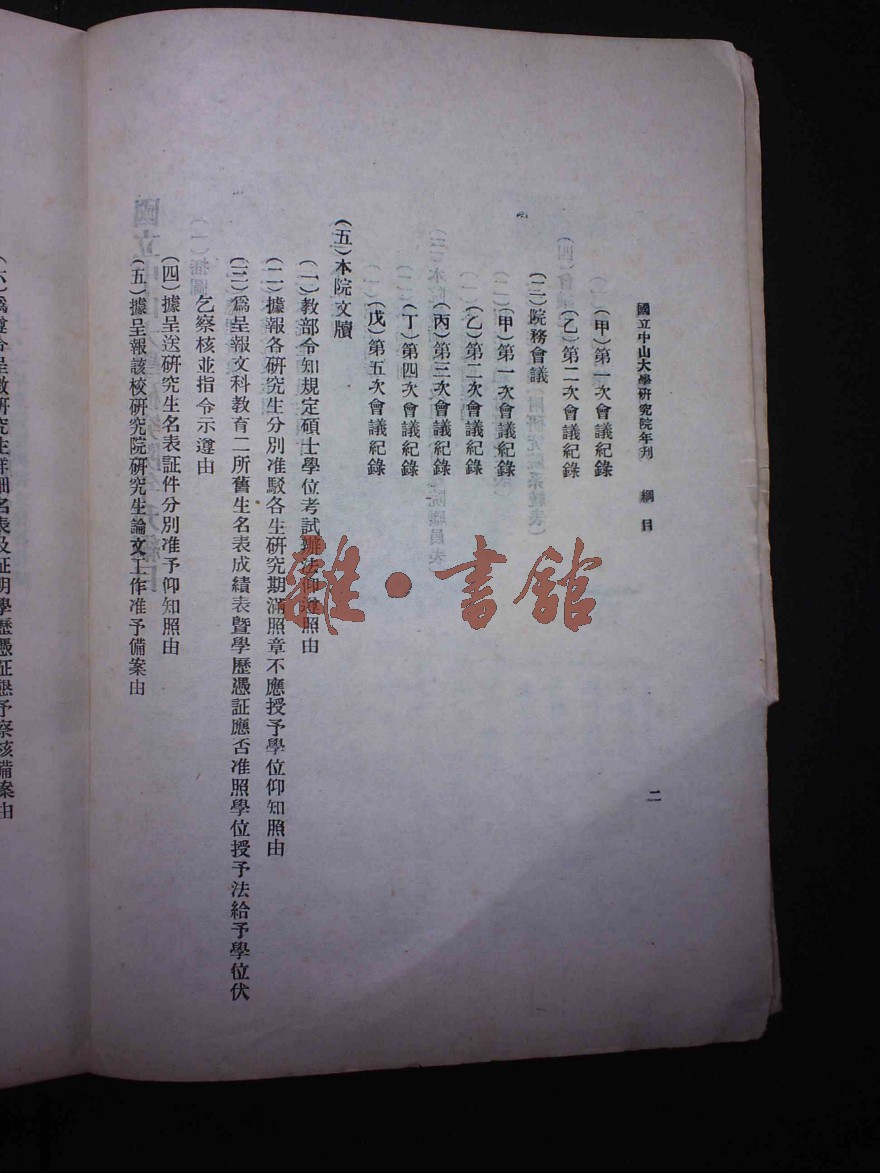 國立中山大學研究院年刊　綱目
二
(甲)第一次會議紀錄
(乙)第二次會議紀錄
(二)院務會議
(甲)第一次會議紀錄
(乙)第二次會議紀錄
(丙)第三次會議紀錄
(丁)第四次會議紀錄
(戊)第五次會議紀錄
(五)本院文牘
(一)教部令知規定碩士學位考試辦法仰遵照由
(二)據報各研究生分別准駁各生研究期滿照章不應授予學位仰知照由
(三)爲呈報文科教育二所舊生名表成績表暨學歷憑証應否准照學位授予法給予學位伏
乞察核並指令示遵由
(四)據呈送研究生名表証件分別准予仰知照由
(五)據呈報該校研究院研究生論文工作准予備案由
(六)爲遵令呈繳研究生詳細名表及証明學歷憑証懇予察核備案由
雜·書館